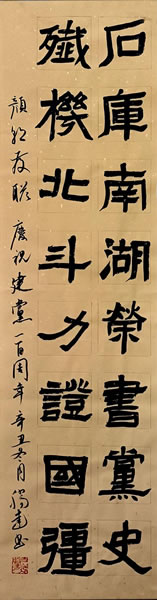 石庫南湖榮書黨史
殱機北斗力證國疆
顏友聯慶祝建黨一百周年辛丑冬月書